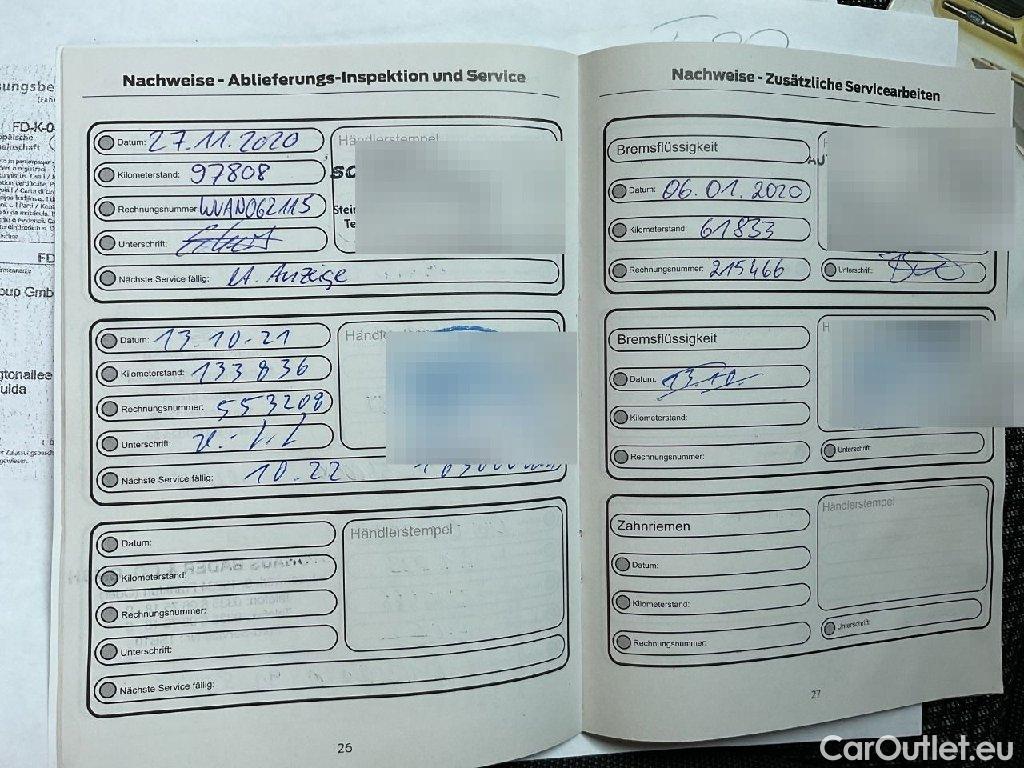 Nachweise - Ablieferungs-Inspektion und Service
Datum: 27.11.2020
Händlerstempel
Kilometerstand: 97808
Rechnungsnummer: WVAN062115
Unterschrift:
Nächste Service fällig: lt. Anzeige
Datum: 13.10.21
Kilometerstand: 133836
Rechnungsnummer: 553208
Unterschrift:
Nächste Service fällig: 10.22
Datum:
Händlerstempel
Kilometerstand:
Rechnungsnummer:
Unterschrift:
Nächste Service fällig:
25
Nachweise - Zusätzliche Servicearbeiten
Bremsflüssigkeit
Datum: 06.01.2020
Kilometerstand: 61833
Rechnungsnummer: 215466
Unterschrift:
Bremsflüssigkeit
Datum: 13.10.
Kilometerstand:
Rechnungsnummer:
Unterschrift:
Zahnriemen
Händlerstempel
Datum:
Kilometerstand:
Rechnungsnummer:
Unterschrift:
27
CarOutlet.eu